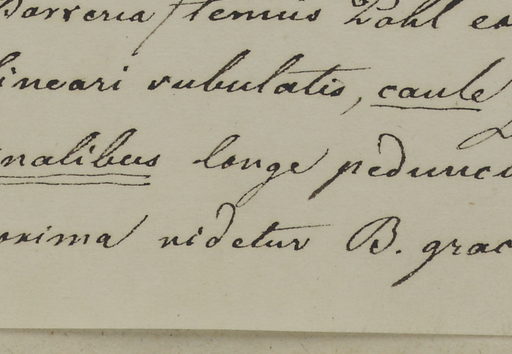 Barreria tenuis Pohl ea
lineari subulatis, caule
nalibus longe pedunc
oxima videtur B. grac